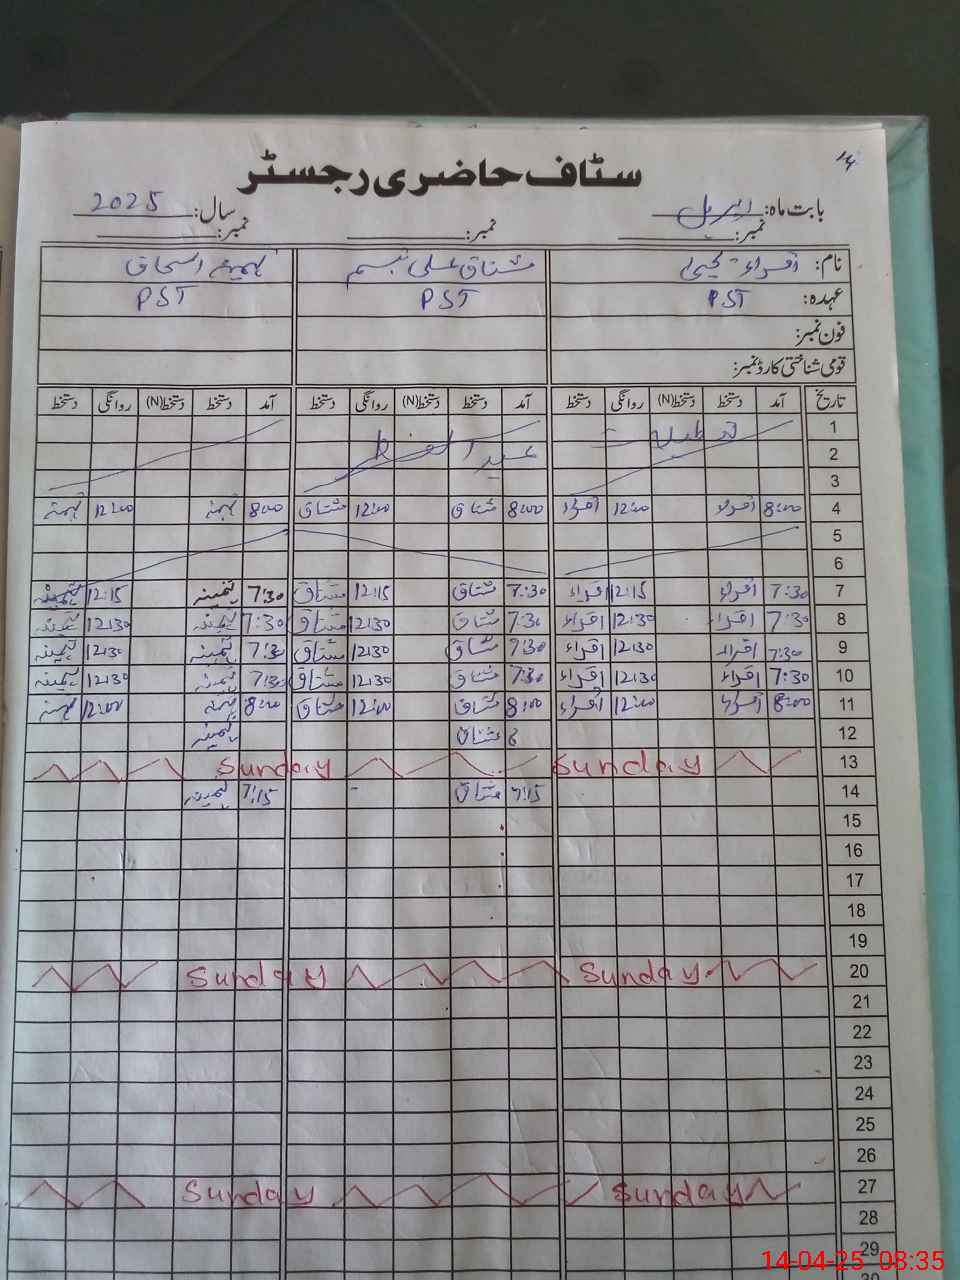 سٹاف حاضری رجسٹر
بابت ماہ: اپریل سال: 2025
نمبر: نمبر: نمبر:
نام: اقراء یحیٰی مشتاق علی تبسم ثمینہ اسحاق
عہدہ: PST PST PST
فون نمبر:
قومی شناختی کارڈ نمبر:
تاریخ آمد دستخط دستخط(N) روانگی دستخط آمد دستخط دستخط(N) روانگی دستخط آمد دستخط دستخط(N) روانگی دستخط
1 تعطیلات
2 عید الفطر
3
4 8:00 اقراء 12:00 اقراء 8:00 مشتاق 12:00 مشتاق 8:00 ثمینہ 12:00 ثمینہ
5
6
7 7:30 اقراء 12:15 اقراء 7:30 مشتاق 12:15 مشتاق 7:30 ثمینہ 12:15 ثمینہ
8 7:30 اقراء 12:30 اقراء 7:30 مشتاق 12:30 مشتاق 7:30 ثمینہ 12:30 ثمینہ
9 7:30 اقراء 12:30 اقراء 7:30 مشتاق 12:30 مشتاق 7:30 ثمینہ 12:30 ثمینہ
10 7:30 اقراء 12:30 اقراء 7:30 مشتاق 12:30 مشتاق 7:30 ثمینہ 12:30 ثمینہ
11 8:00 اقراء 12:00 اقراء 8:00 مشتاق 12:00 مشتاق 8:00 ثمینہ 12:00 ثمینہ
12 مشتاق ثمینہ
13 Sunday Sunday
14 7:15 مشتاق 7:15 ثمینہ
15
16
17
18
19
20 Sunday Sunday
21
22
23
24
25
26
27 Sunday Sunday
28
29
14-04-25 08:35